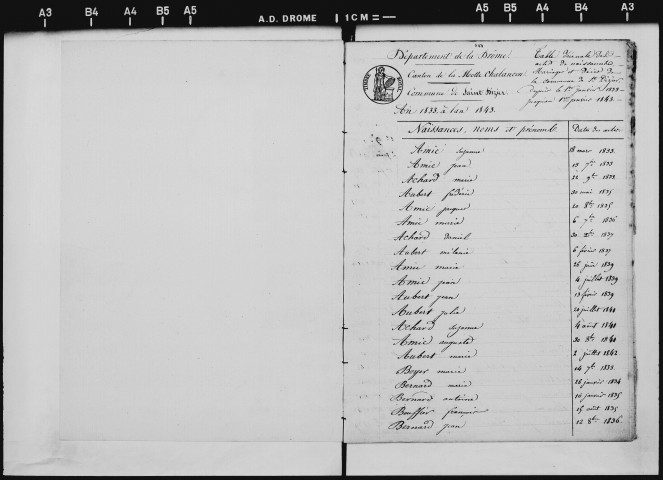 A3 B4 A4 B5 A5 A.D. DROME 1CM A5 B5 A4 B4 A3
Département de la Drôme
Canton de la Motte Chalancon
Commune de Saint Dizier
An 1833 à l'an 1843.
Table décennale des
actes de naissances
Mariages et Décès de
la Commune de St Dizier
Depuis le 1er janvier 1833
jusqu'au 1er janvier 1843.
Naissances, noms et prénoms. Dates des actes
Amic suzanne 18 mars 1833.
Amic jean 19 7bre 1833
Achard marie 22 9bre 1833
Aubert frédéric 20 mai 1835
Amic jacques 20 8bre 1835
Amic marie 6 7bre 1836
Achard daniel 30 1837
Aubert mélanie 6 février 1837
Amic marie 26 juin 1839
Amic jean 4 juillet 1839
Aubert jean 13 février 1839
Aubert julie 20 juillet 1840
Achard suzanne 4 août 1840
Amic auguste 30 8bre 1840
Aubert marie 2 juillet 1842
Boyer marie 14 7bre 1833
Bernard marie 26 janvier 1834
Bernard antoine 10 janvier 1835
Bouffier françois 15 août 1835
Bernard jean 12 8bre 1836